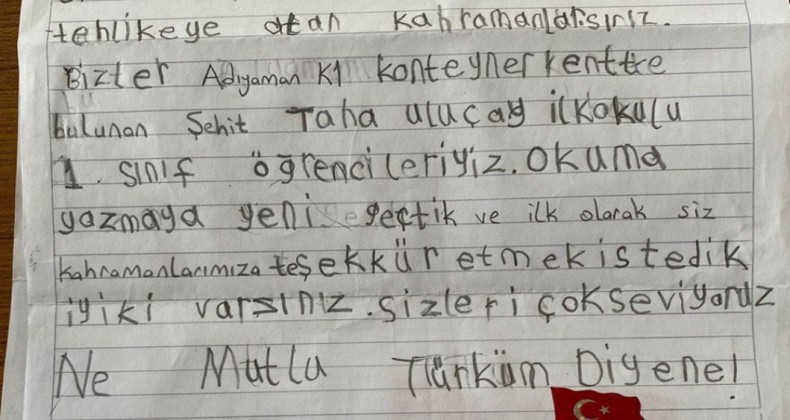 tehlikeye atan kahramanlarsınız.
Bizler Adıyaman K1 konteyner kentte
bulunan Şehit Taha uluçay ilkokulu
1. sınıf öğrencileriyiz. Okuma
yazmaya yeni geçtik ve ilk olarak siz
kahramanlarımıza teşekkür etmek istedik
iyiki varsınız. sizleri çok seviyoruz
Ne Mutlu Türküm Diyene!